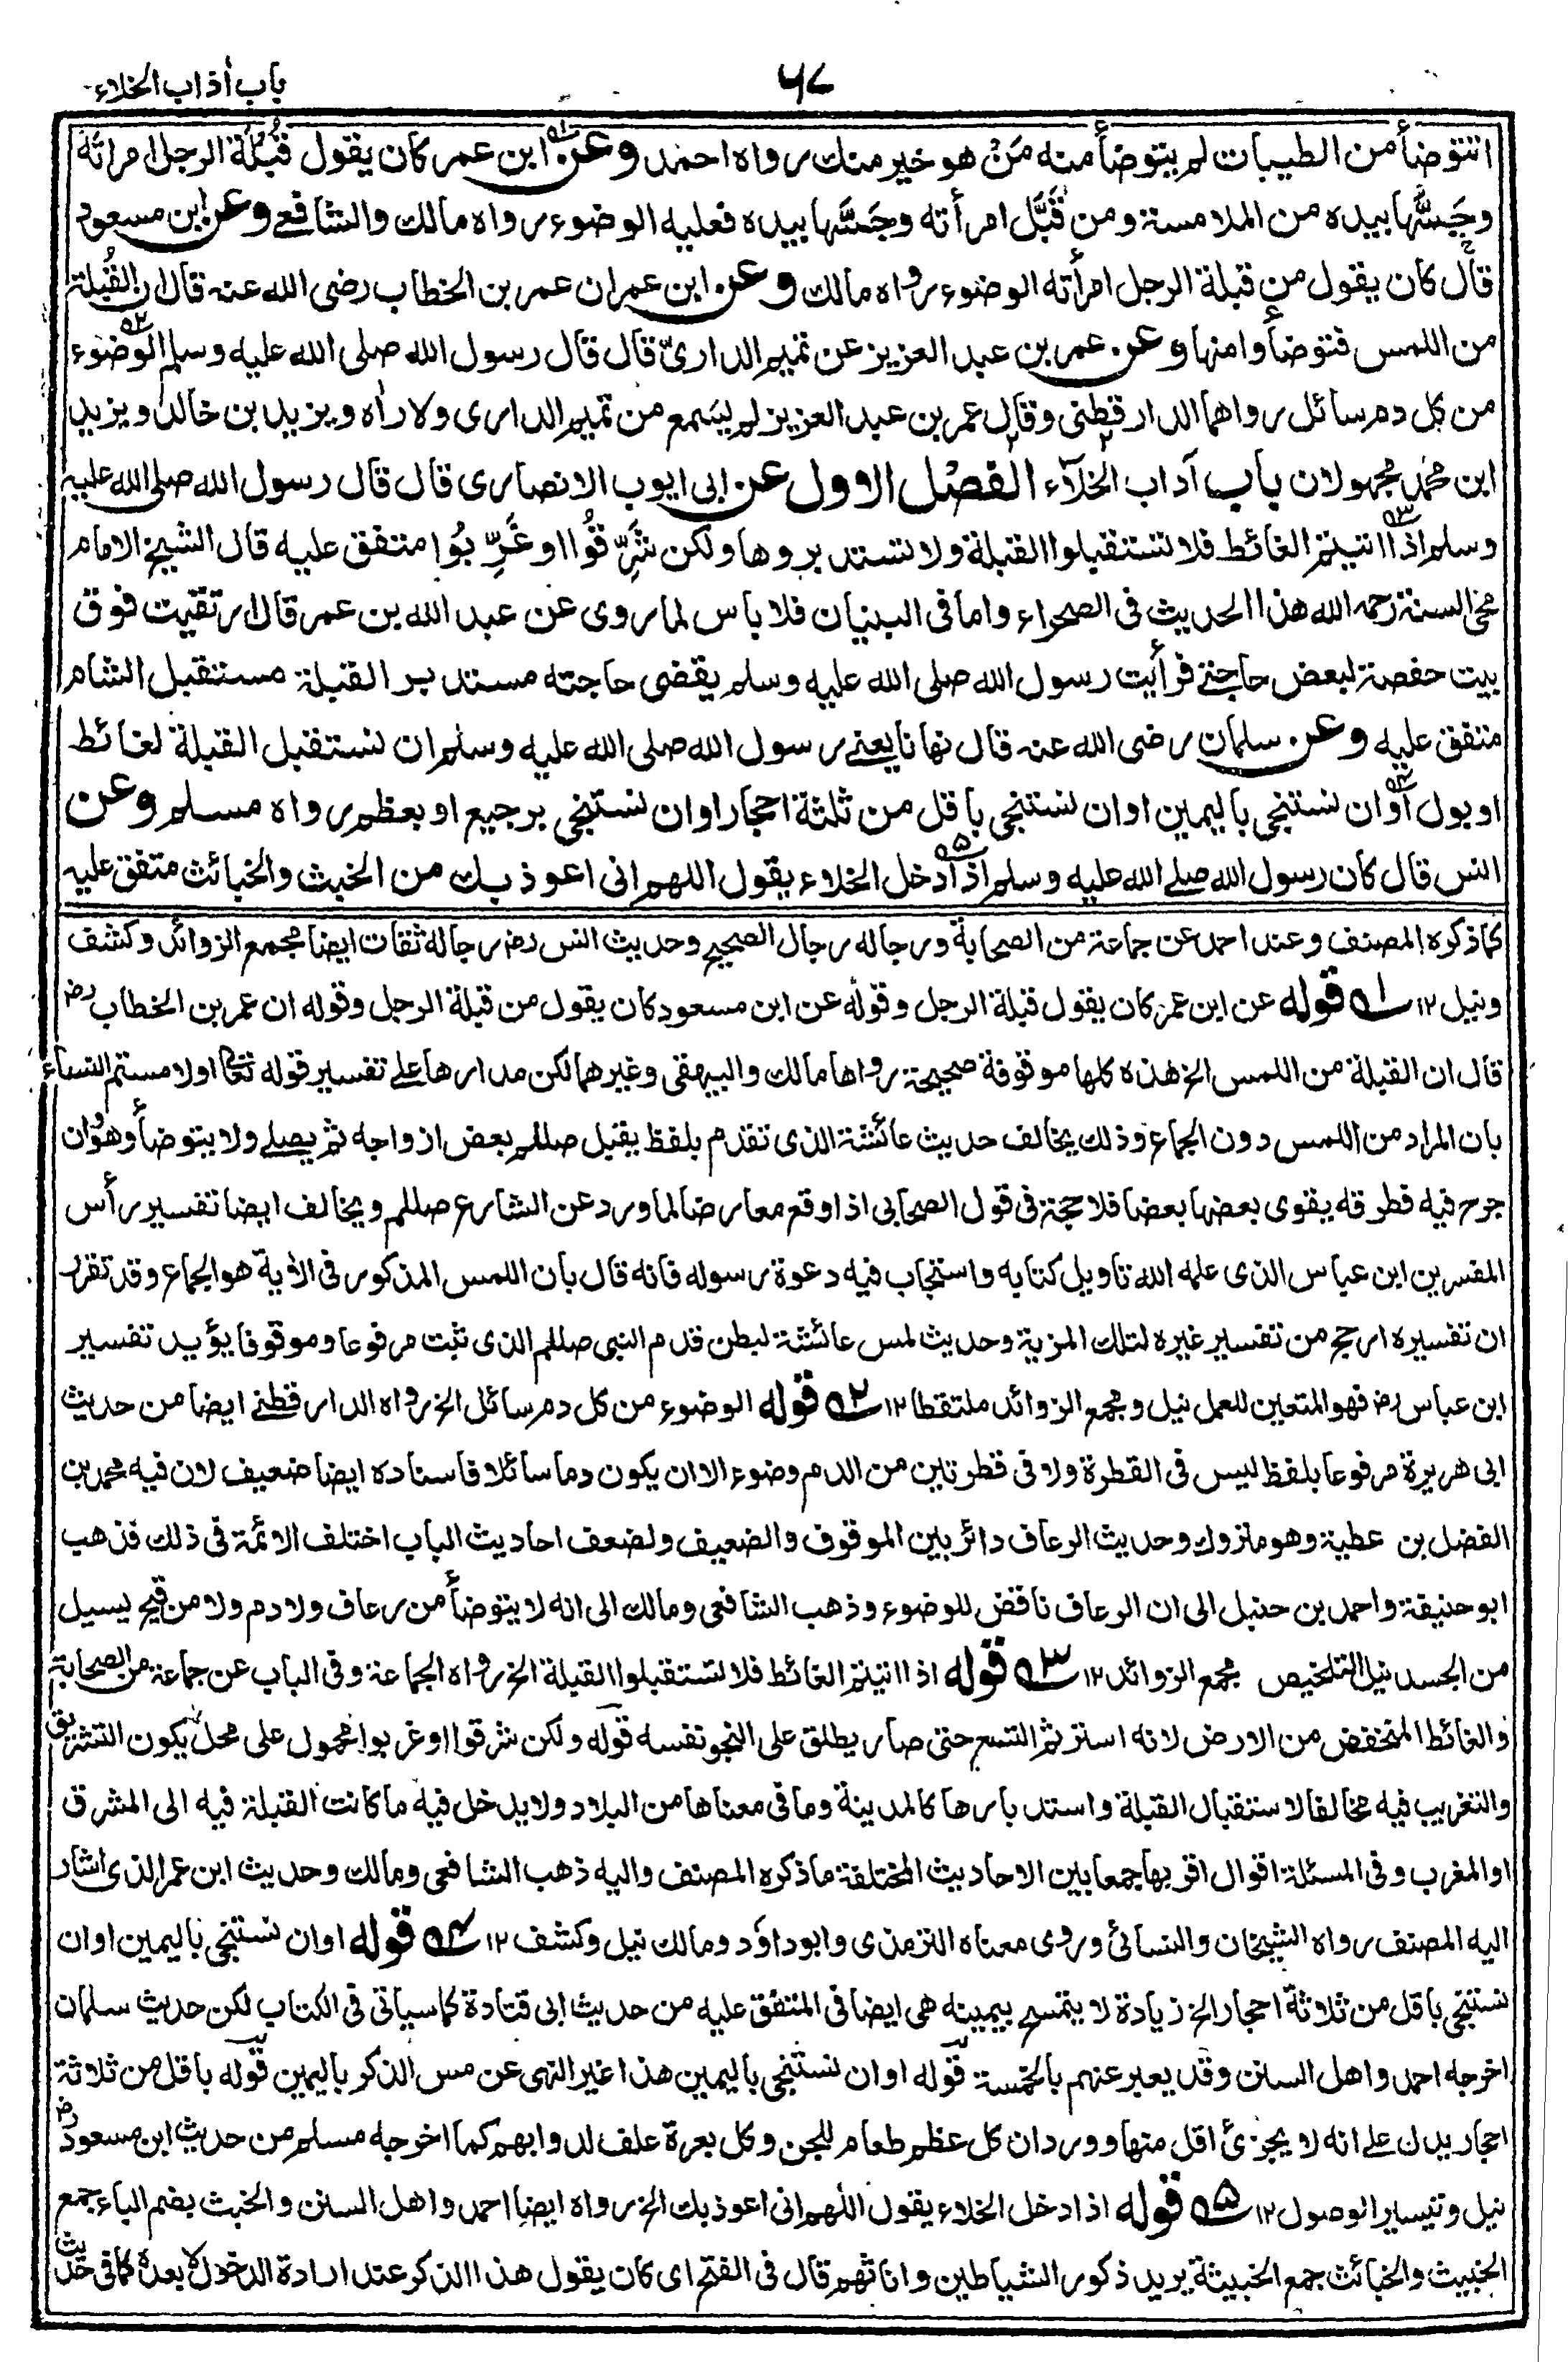 باب أداب الخلاء
٦٧
انتوضأ من الطيبات لم يتوضأ منه مَنْ هو خير منك رواه احمد وعن ابن عمر كان يقول قُبْلَة الرجل امرأتَهُ
وجَسُّها بيده من الملامسة ومن قَبَّل امرأته وجَسَّها بيده فعليه الوضوء رواه مالك والشافعے وعن ابن مسعود
قال كان يقول من قبلة الرجل امرأته الوضوء رواه مالك وعن ابن عمر ان عمر بن الخطاب رضى الله عنه قال ان القُبلة
من اللمس فتوضأوا منها وعن عمر بن عبد العزيز عن تميم الدارىّ قال قال رسول الله صلى الله عليه وسلم الوضوء
من كل دم سائل رواهما الدارقطنى وقال عمر بن عبد العزيز لم يسمع من تميم الدارى ولا راٰه ويزيد بن خالد ويزيد
ابن محمد مجهولان باب آداب الخلآء الفصل الاول عن ابى ايوب الانصارى قال قال رسول الله صلى الله عليه
وسلم اذا اتيتم الغائط فلا تستقبلوا القبلة ولا تستدبروها ولكن شَرِّقُوا او غَرِّبُوا متفق عليه قال الشيخ الامام
محى السنة رحمه الله هذا الحديث فى الصحراء واما فى البنيان فلا باس لما روى عن عبد الله بن عمر قال ارتقيت فوق
بيت حفصة لبعض حاجتے فرأيت رسول الله صلى الله عليه وسلم يقضى حاجته مستدبر القبلة مستقبل الشام
متفق عليه وعن سلمان رضى الله عنه قال نهانا يعنے رسول الله صلى الله عليه وسلم ان نستقبل القبلة لغائط
او بول أو ان نستنجى باليمين او ان نستنجى باقل من ثلثة احجار او ان نستنجى برجيع او بعظم رواه مسلم وعن
انس قال كان رسول الله صلے الله عليه وسلم اذا دخل الخلاء يقول اللهم انى اعوذ بك من الخبث والخبائث متفق عليه
كما ذكره المصنف وعند احمد عن جماعة من الصحابة ورجاله رجال الصحيح وحديث انس رض رجاله ثقات ايضا مجمع الزوائد وكشف
ونيل ١٢ ١ـه قوله عن ابن عمر كان يقول قبلة الرجل وقوله عن ابن مسعود كان يقول من قبلة الرجل وقوله ان عمر بن الخطاب رض
قال ان القبلة من اللمس الخ هذه كلها موقوفة صحيحة رواها مالك والبيهقى وغيرهما لكن مدارها علے تفسير قوله تعا اولا مستم النساء
بان المراد من اللمس دون الجماع وذلك يخالف حديث عائشة الذى تقدم بلفظ يقبل صللم بعض ازواجه ثم يصلے ولا يتوضأ وهو وان
جرح فيه فطرقه يقوى بعضها بعضا فلا حجة فى قول الصحابى اذا وقع معارضا لما ورد عن الشارع صللم ويخالف ايضا تفسير رأس
المفسرين ابن عباس الذى علمه الله تاويل كتابه واستجاب فيه دعوة رسوله فانه قال بان اللمس المذكور فى الأية هو الجماع وقد تقرر
ان تفسيره ارجح من تفسير غيره لتلك المزية وحديث لمس عائشة لبطن قدم النبى صللم الذى ثبت مرفوعا وموقوفا يؤيد تفسير
ابن عباس رض فهو المتعين للعمل نيل ومجمع الزوائد ملتقطا ١٢ ٢ـه قوله الوضوء من كل دم سائل الخ رواه الدارقطنے ايضا من حديث
ابى هريرة مرفوعا بلفظ ليس فى القطرة ولا فى قطرتين من الدم وضوء الا ان يكون دما سائلا فاسناده ايضا ضعيف لان فيه محمد بن
الفضل بن عطية وهو متروك وحديث الرعاف دائر بين الموقوف والضعيف ولضعف احاديث الباب اختلف الائمة فى ذلك فذهب
ابو حنيفة واحمد بن حنبل الى ان الرعاف ناقض للوضوء وذهب الشافعى ومالك الى انه لا يتوضأ من رعاف ولا دم ولا من قيح يسيل
من الجسد نيل التلخيص مجمع الزوائد ١٢ ٣ـه قوله اذا اتيتم الغائط فلا تستقبلوا القبلة الخ رواه الجماعة وفى الباب عن جماعة من الصحابة
والغائط المنخفض من الارض لانه استر ثم اتسع حتى صار يطلق على النجو نفسه قوله ولكن شرقوا او غربوا محمول على محل يكون التشريق
والتغريب فيه مخالفا لاستقبال القبلة واستدبارها كالمدينة وما فى معناها من البلاد ولا يدخل فيه ما كانت القبلة فيه الى المشرق
او المغرب وفى المسئلة اقوال اقربها جمعا بين الاحاديث المختلفة ما ذكره المصنف واليه ذهب الشافعى ومالك وحديث ابن عمر الذى اشار
اليه المصنف رواه الشيخان والنسائى وروى معناه الترمذى وابوداؤد ومالك نيل وكشف ١٢ ٤ـه قوله او ان نستنجى باليمين او ان
نستنجى باقل من ثلاثة احجار الخ زيادة لا يتمسح بيمينه هى ايضا فى المتفق عليه من حديث ابى قتادة كما سياتى فى الكتاب لكن حديث سلمان
اخرجه احمد واهل السنن وقد يعبر عنهم بالخمسة قوله او ان نستنجى باليمين هذا غير النهى عن مس الذكر باليمين قوله باقل من ثلاثة
احجار يدل علے انه لا يجزئ اقل منها وورد ان كل عظم طعام للجن وكل بعرة علف لدوابهم كما اخرجه مسلم من حديث ابن مسعود رض
نيل وتيسير الوصول ١٢ ٥ـه قوله اذا دخل الخلاء يقول اللهم انى اعوذ بك الخ رواه ايضا احمد واهل السنن والخبث بضم الباء جمع
الخبيث والخبائث جمع الخبيثة يريد ذكور الشياطين واناثهم قال فى الفتح اى كان يقول هذا الذكر عند ارادة الدخول لا بعده كما فى حديث